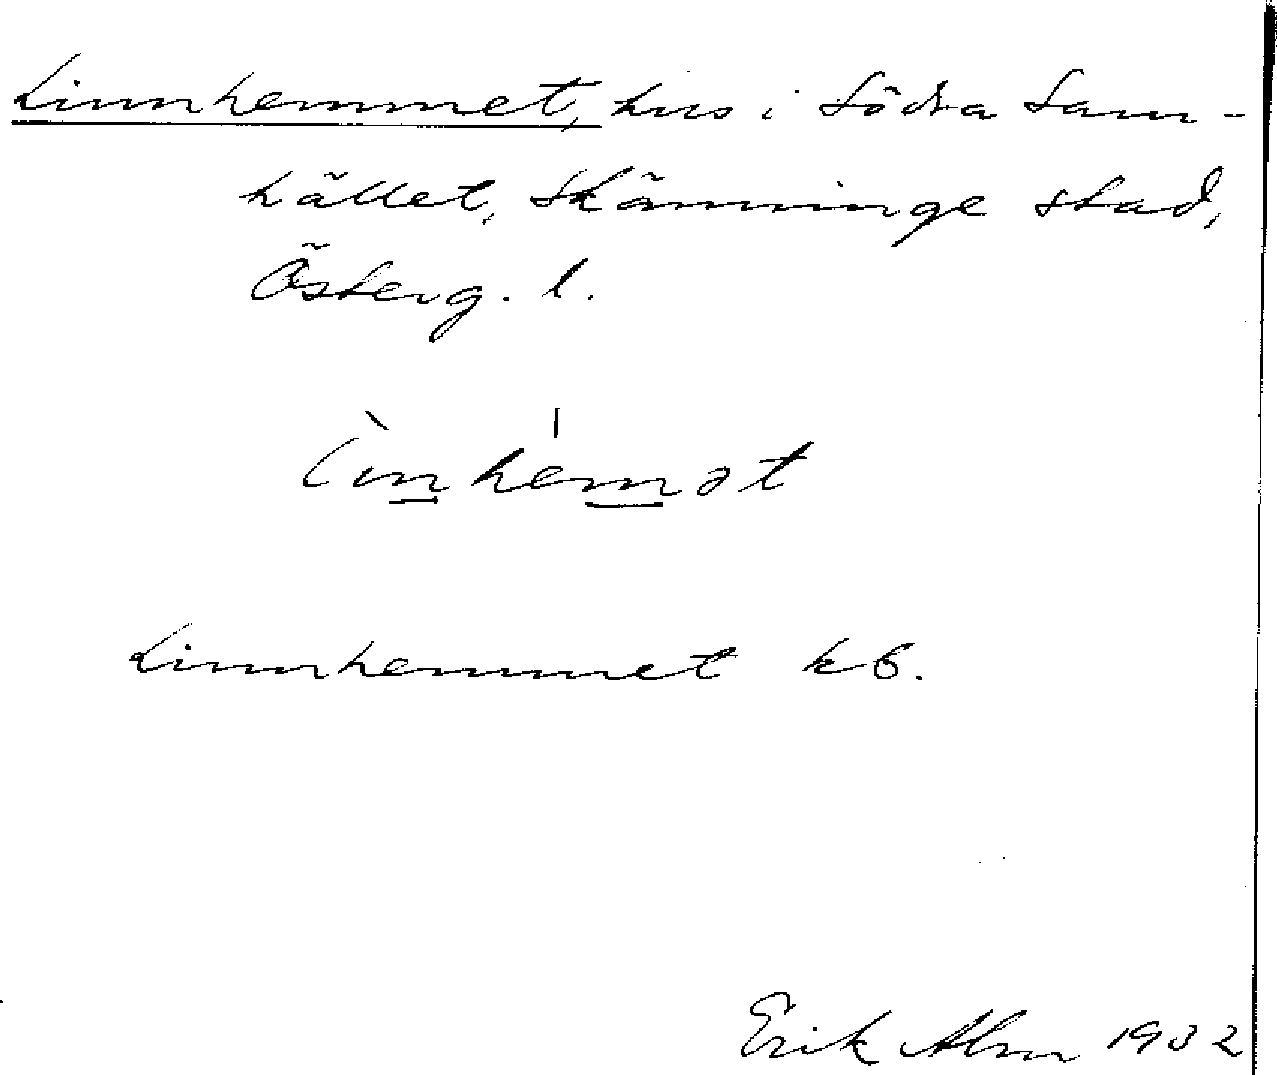 Linnhemmet, hus i Södra Sam-
hället, Skänninge stad,
Österg. l.
lìnhémət
Linnhemmet kb.
Erik Alm 1932